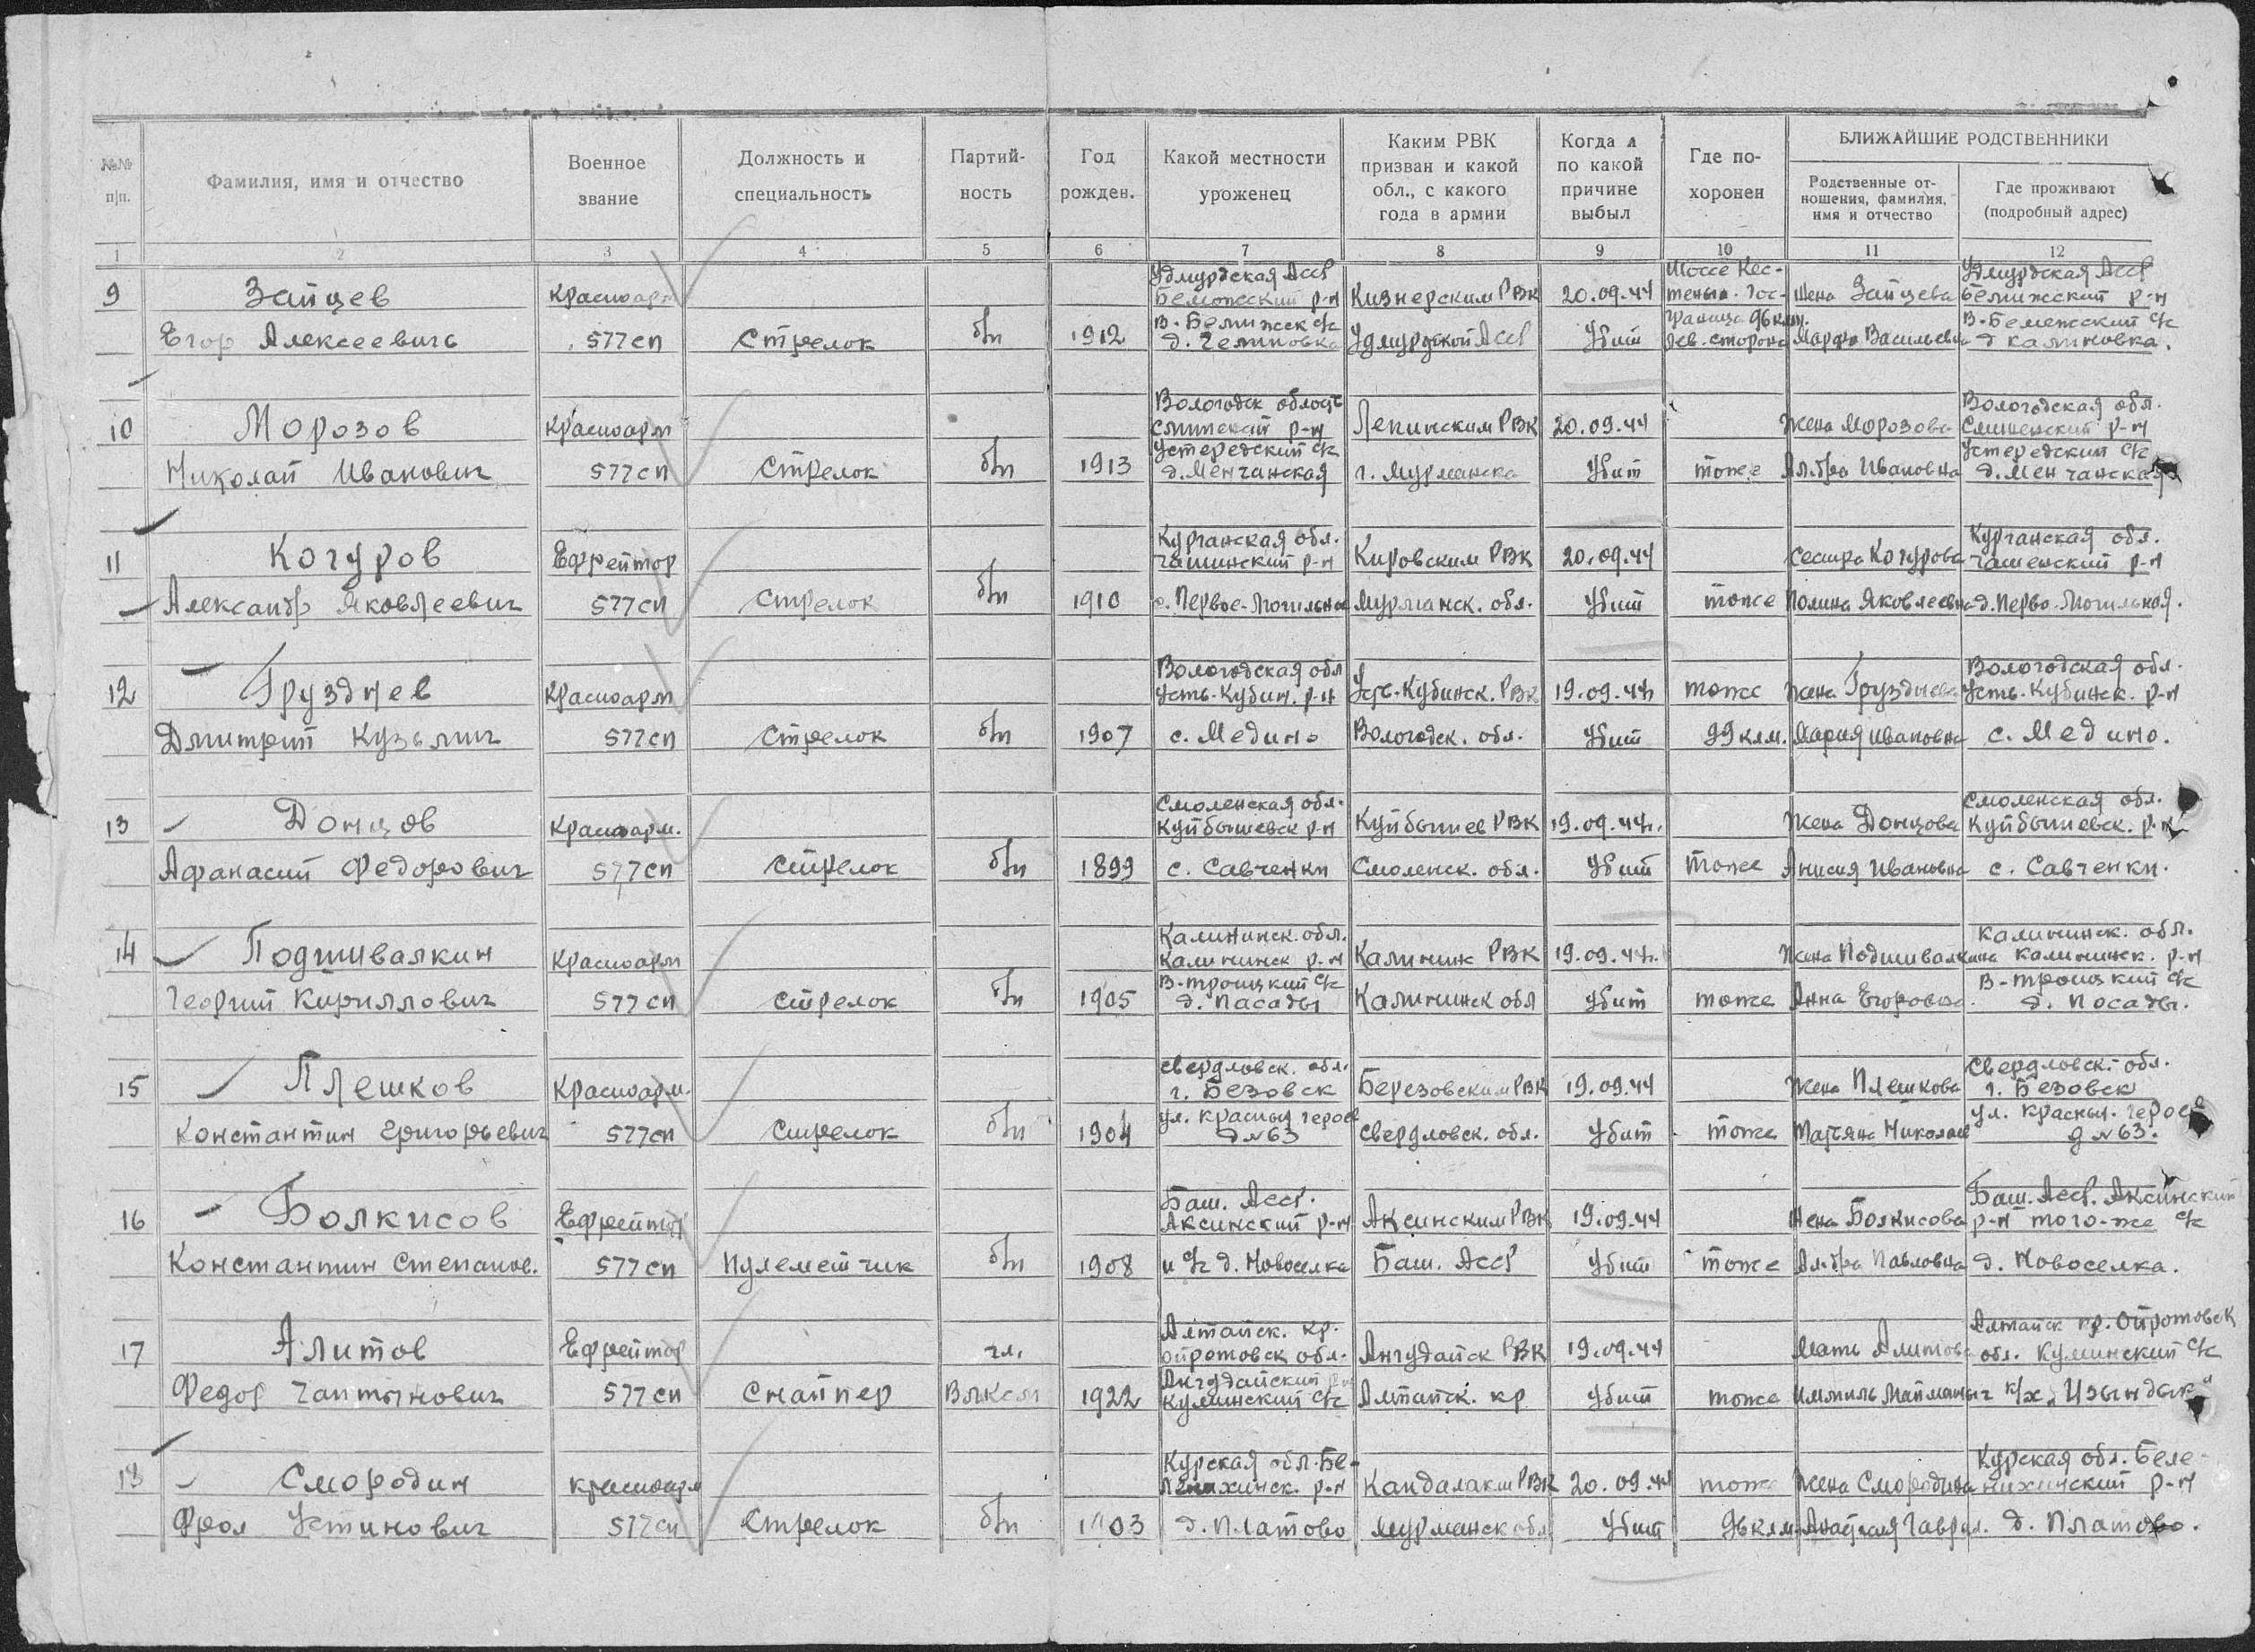 №№ п/п.
Фамилия, имя и отчество
Военное звание
Должность и специальность
Партий-ность
Год рожден.
Какой местности уроженец
Каким РВК призван и какой обл., с какого года в армии
Когда и по какой причине выбыл
Где по-хоронен
БЛИЖАЙШИЕ РОДСТВЕННИКИ
Родственные от-ношения, фамилия, имя и отчество
Где проживают (подробный адрес)
1 2 3 4 5 6 7 8 9 10 11 12
9 Зайцев Красноарм Удмурдская Асср Беможский р-н Кизнерским РВК 20.09.44 Шоссе Кес-теньга. Гос- жена Зайцева Удмурдская Асср Бемижский р-н
Егор Алексеевичь 577сп Стрелок б/п 1912 В-Бемижск с/с д. Челиновка Удмурдской Асср Убит граница 96 клм. Лев. сторона Марфа Васильевна В-Бемежский с/с д Калиновка.
10 Морозов Красноарм Вологодск область р-н Ленинским РВК 20.09.44 Жена Морозова Вологодская обл. р-н
Николай Иванович 577сп Стрелок б/п 1913 Устередский с/с д. Менчанская г. Мурманска Убит тоже Ал-дра Ивановна Устередский с/с д. Менчанская
11 Кочуров Ефрейтор Курганская обл. Чашинский р-н Кировским РВК 20.09.44 сестра Кочурова Курганская обл. Чашенский р-н
Александр Яковлеевич 577сп Стрелок б/п 1910 с. Первое-Могильное Мурманск. обл. Убит тоже Полина Яковлеевна д. Перво-Могильная.
12 Грузднев Красноарм Вологодская обл Усть-Кубин. р-н Усть-Кубинск. РВК 19.09.44 тоже жена Грузднева Вологодская обл. Усть-Кубинск. р-н
Дмитрий Кузьмич 577сп Стрелок б/п 1907 с. Медино Вологодск. обл. Убит 99 клм. Мария Ивановна с. Медино.
13 Донцов Красноарм. Смоленская обл. Куйбышевск р-н Куйбышев РВК 19.09.44г. Жена Донцова Смоленская обл. Куйбышевск. р-н
Афанасий Федорович 577сп Стрелок б/п 1899 с. Савченки Смоленск. обл. Убит тоже Анисия Ивановна с. Савченки.
14 Подшивалкин Красноарм Калининск. обл. Калининск р-н Калинин РВК 19.09.44г. Жена Подшивалкина Калининск. обл. Калининск. р-н
Георгий Кириллович 577сп Стрелок б/п 1905 В-троицкий с/с д. Пасады Калининск обл Убит тоже Анна Егоровна В-троицкий с/с д. Посады.
15 Плешков Красноарм. Свердловск. обл. г. Безовск Березовским РВК 19.09.44 Жена Плешкова Свердловск. обл. г. Безовск
Константин Григорьевич 577сп Стрелок б/п 1904 ул. Красных героев д № 63 Свердловск. обл. Убит тоже Татьяна Николаев ул. Красных героев д № 63.
16 Болкисов Ефрейтор Баш. Асср. Аксинский р-н Аксинским РВК 19.09.44 Жена Болкисова Баш. Асср. Аксинский р-н того-же с/с
Константин Степанов. 577сп Пулеметчик б/п 1908 и с/с д. Новоселка Баш. Асср Убит тоже Ал-дра Павловна д. Новоселка.
17 Алитов Ефрейтор чл. Алтайск. кр. ойротовск обл. Ангудайск РВК 19.09.44 Мать Алитова Алтайск кр. Ойротовск обл. Куминский с/с
Федор Чаптынович 577сп Снайпер Влксм 1922 Ангудайский р-н Куминский с/с Алтайск. кр Убит тоже к/х „Изындык"
18 Смородин красноарм Курская обл. Бе-ленихинск. р-н Кандалакш РВК 20.09.44 тоже Жена Смородина Курская обл. Беле-нихинский р-н
Фрол Устинович 577сп Стрелок б/п 1903 д. Платово Мурманск обл Убит 96 клм. Гаврил. д. Платово.